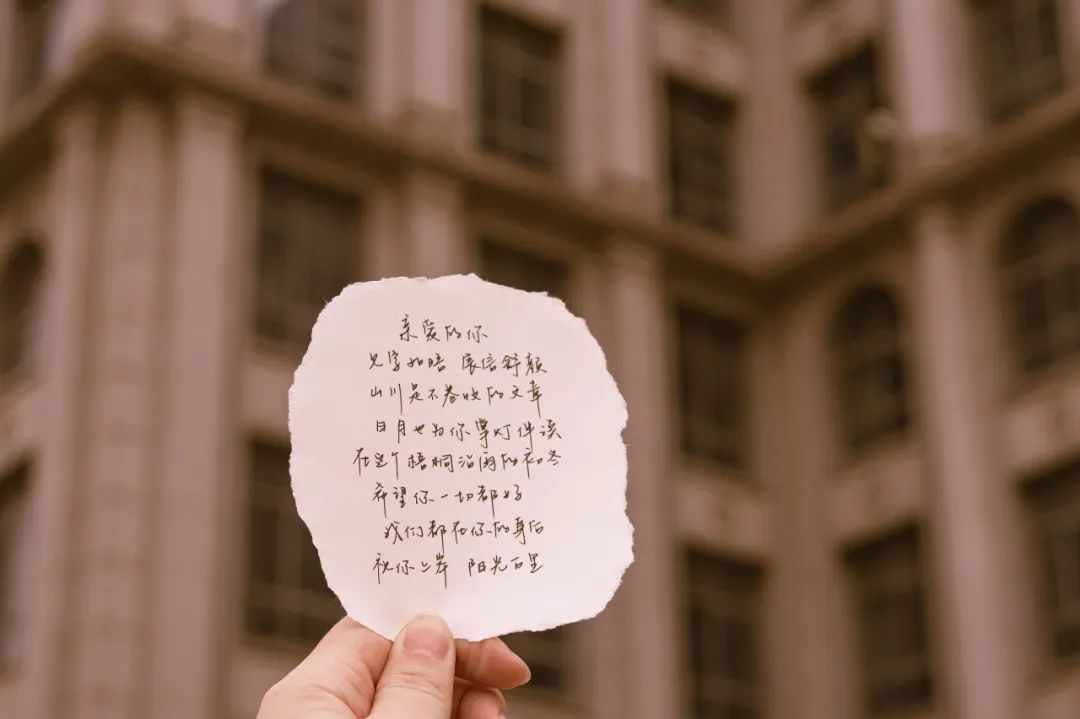 亲爱的你
见字如晤 展信舒颜
山川是不卷收的文章
日月也为你掌灯伴读
在这个梧桐沾雨的初冬
希望你一切都好
我们都在你的身后
祝你上岸 阳光万里